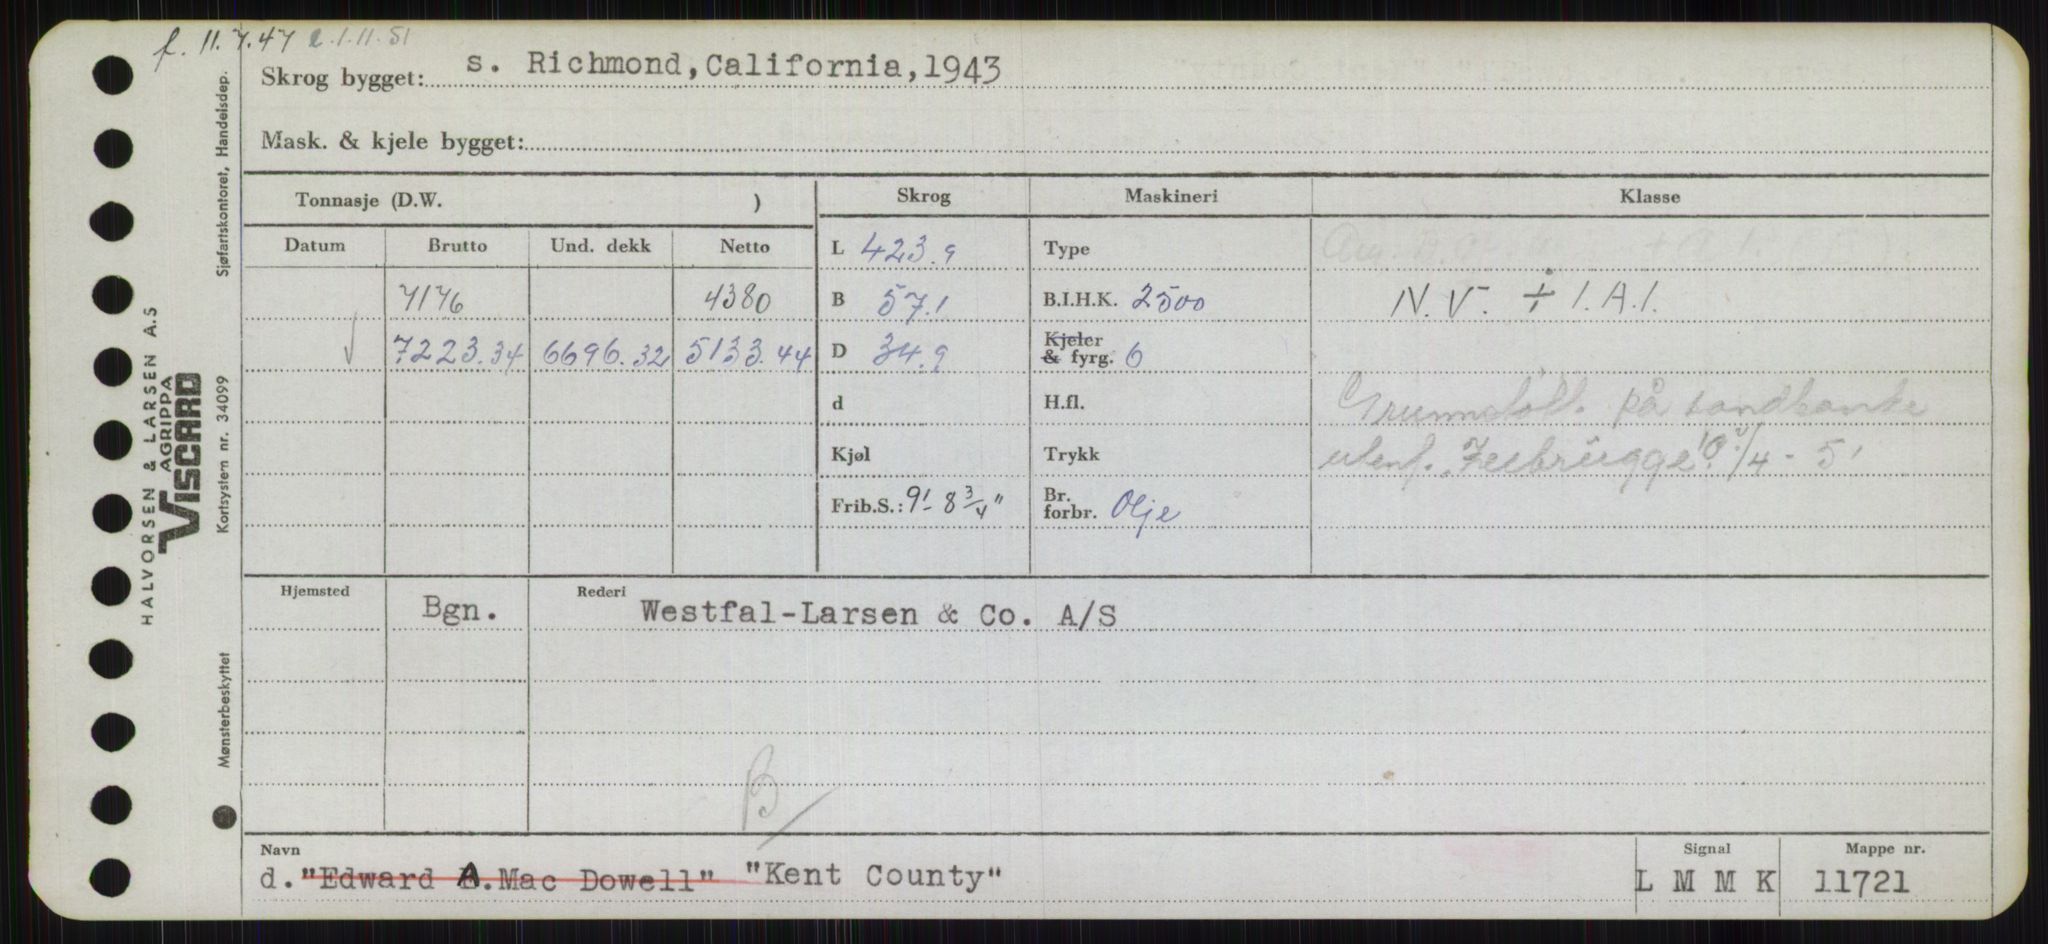 f. 11.7.47 e.1.11.51
Skrog bygget: s. Richmond, California, 1943
Mask. & kjele bygget:
Tonnasje (D.W. )
Skrog Maskineri Klasse
Datum Brutto Und. dekk Netto
L 423.9 Type
7176 4380 B 57.1 B.I.H.K. 2500 N.V. ÷ 1.A.1.
7223.34 6696.32 5133.44 D 34.9 Kjeler & fyrg. 6
d H.fl. på sandbanke
Kjøl Trykk utenf. Zeebrügge /4 - 51
Frib.S.: 9'- 8 3/4" Br. forbr. Olje
Hjemsted Bgn. Rederi Westfal-Larsen & Co. A/S
B
Navn Signal Mappe nr.
d. "Edward A. Mac Dowell" "Kent County" L M M K 11721
HALVORSEN & LARSEN A.S
AGRIPPA
VISCARD
Kortsystem nr. 34099
Sjøfartskontoret, Handelsdep.
Mønsterbeskyttet